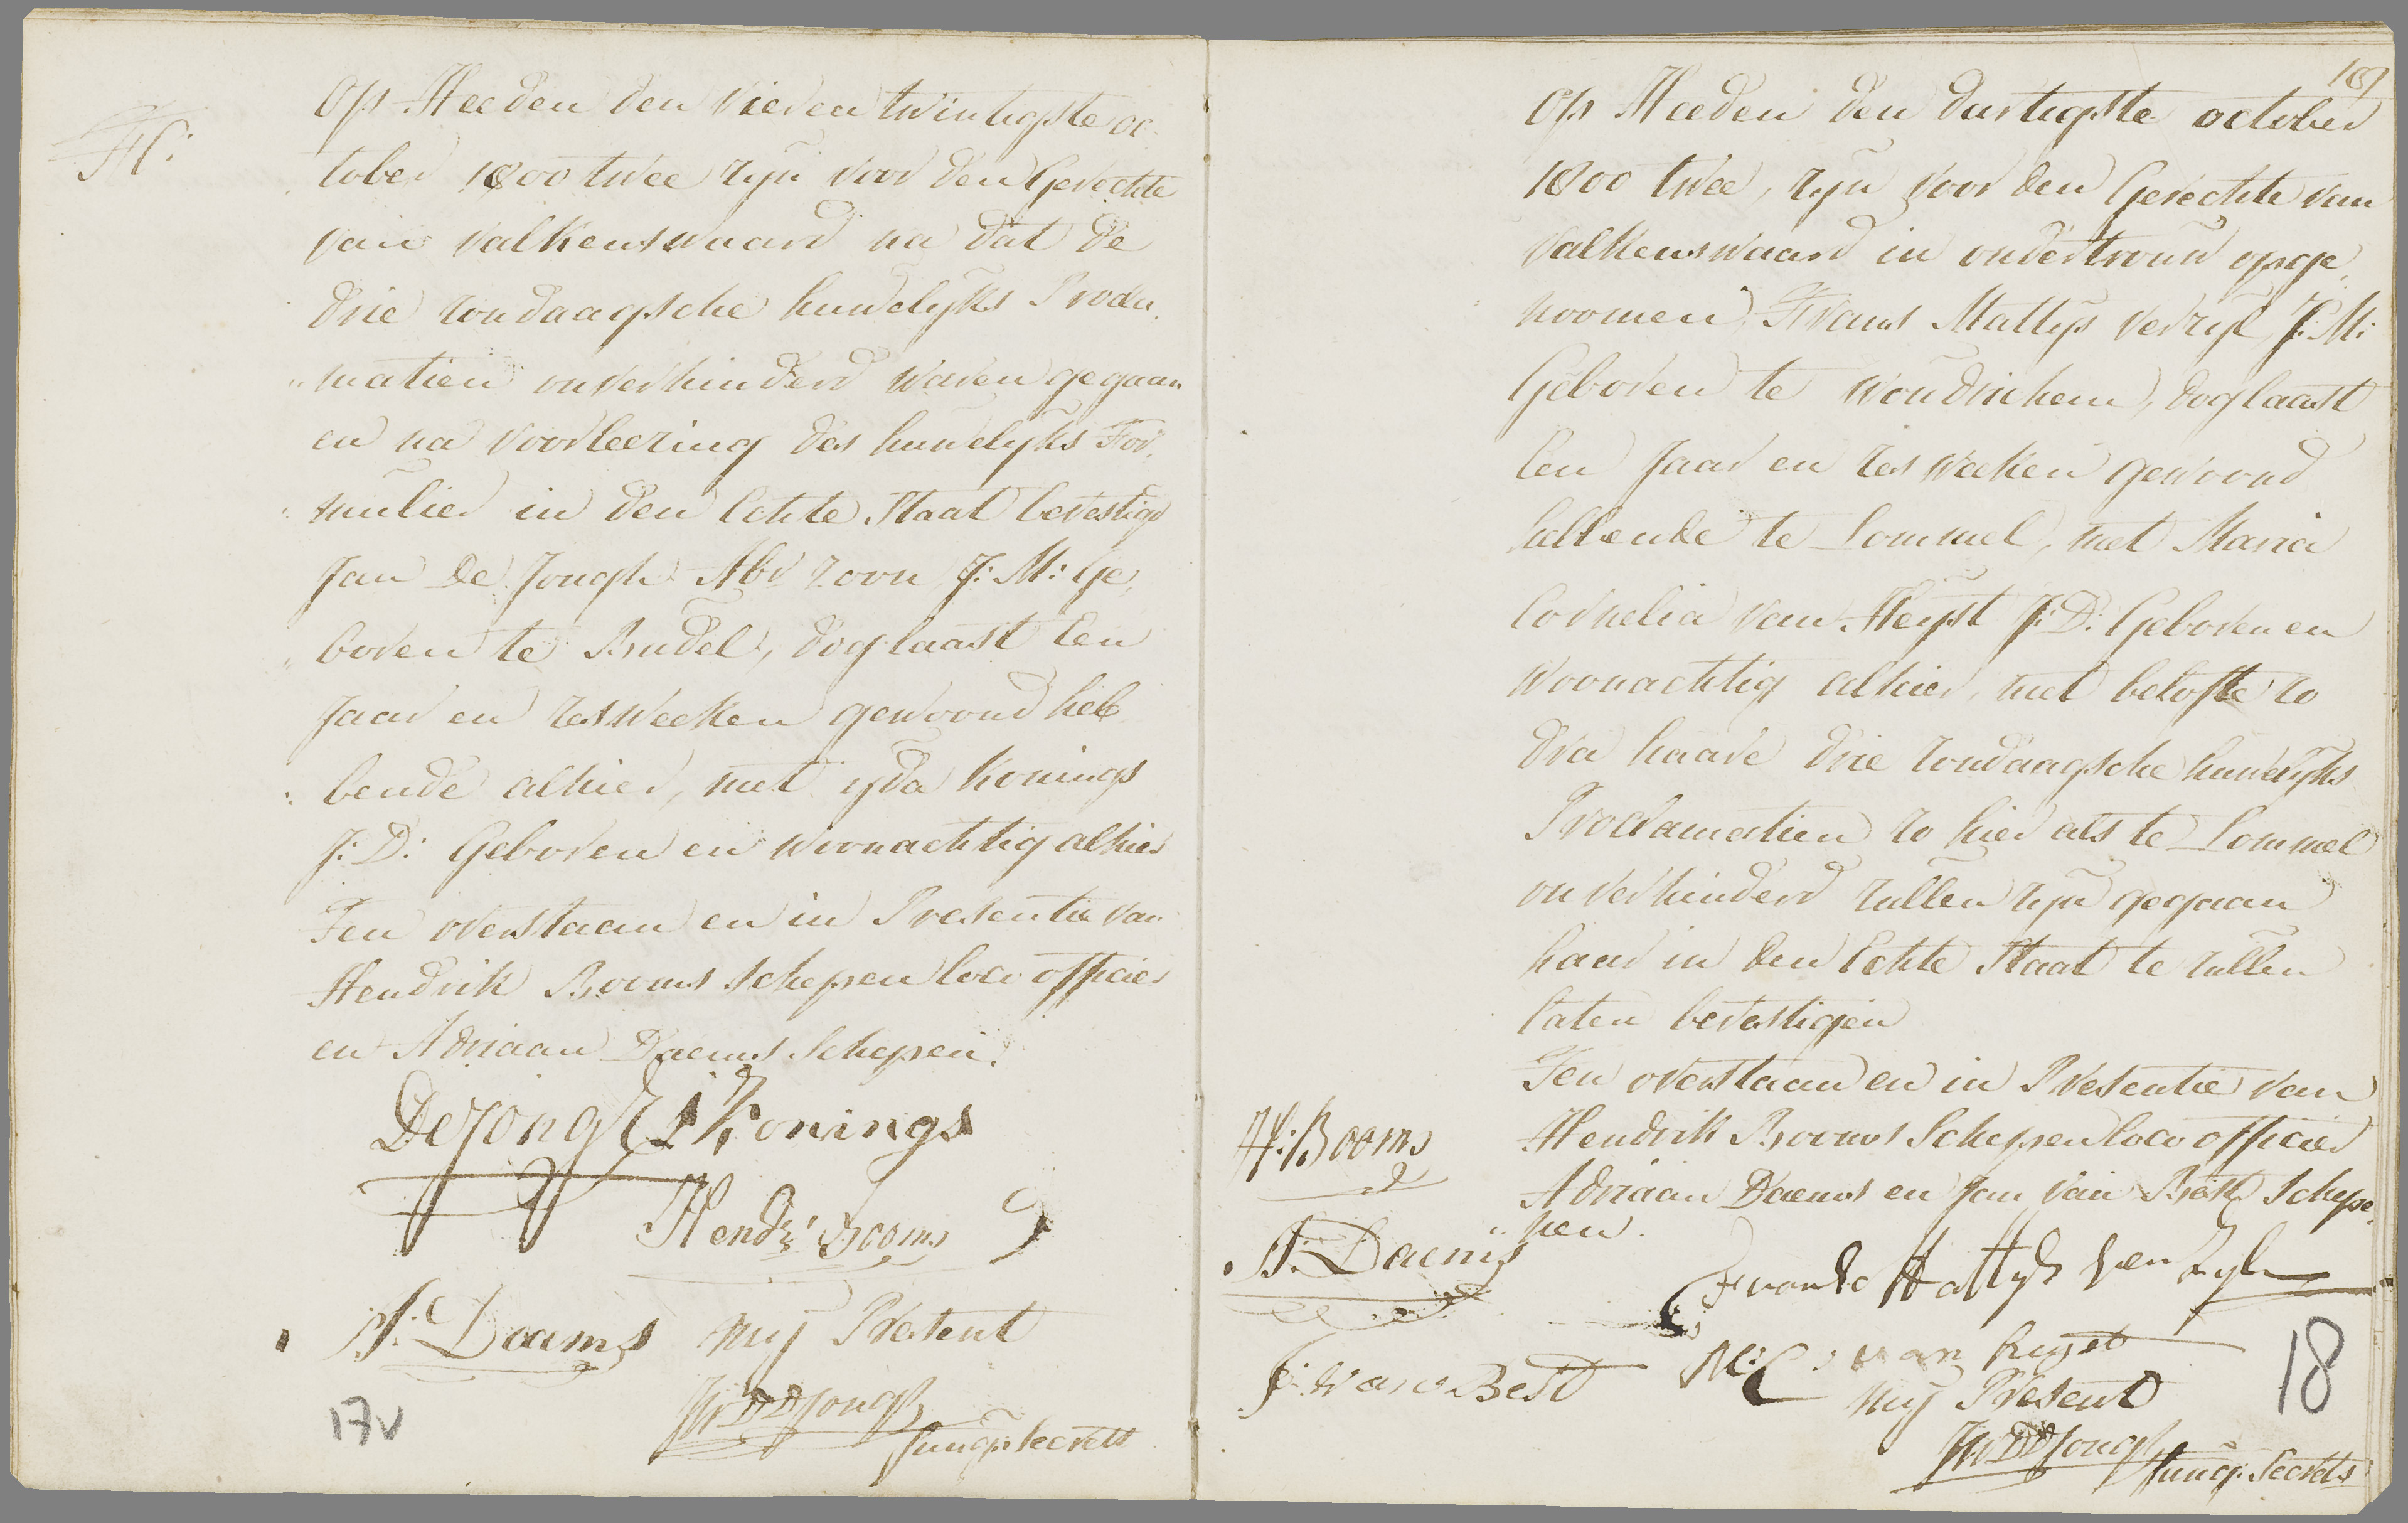 H:
Op Heeden den vierentwintigste oc
tober 1800 twee zyn voor den Gerechte
van Valkenswaard na dat de
drie zondaagsche huwelyks Procla,
"matien onverhinderd waren gegaan
en na voorleezing des huwelyks For,
mulier in den Echte Staat bevestigd
Jan De Jongh Abr zoon J: M: Ge,
"boren te Budel, dog laast Een
Jaar en zes weeken gewoond heb
bende alhier, met yda Konings
J: D: Geboren en woonachtig alhier
Ten overstaan en in Presentie van
Hendrik Booms Schepen loco officier
en Adriaan Daems Schepen.
De Jongh I Konings
Hendr: Booms
A: Daams Mij Present
Jungs Secrets
17v
189
Op Heeden den dertigste october
1800 twee, zyn voor den Gerechte van
Valkenswaard in ondertrouw opge,
noomen Frans Mattys Verzyl J: M:
Geboren te Woudrichem, dog laast
Een Jaar en zes weeken gewoond
hebbende te Lommel, met Maria
Cornelia van Heyst J: D: Geboren en
woonachtig alhier, met belofte zo
dra haare drie zondaagsche huwelyks
Proclamatien zo hier als te Lommel
onverhinderd zullen zyn gegaan
haar in den Echte Staat te zullen
laten bevestigen
Ten overstaan en in Presentie van
Hendrik Booms Schepen loco officier
Adriaan Daems en Jan van Best Schepe,
"nen.
H: Booms
A: Daems
J: van Best
Frans Mattys Verzyl
M: C: van heyst
Mij Present
Jungs. Secrets
18